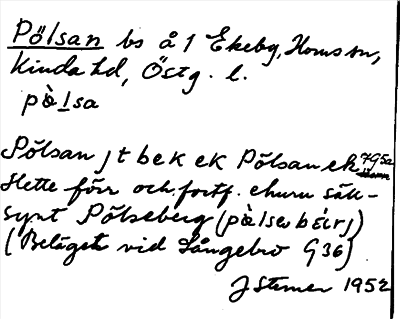 Pölsan bs å 1 Ekeby, Horns sn,
Kinda hd, Östg. l.
pɑ̀lsa
Pölsan jt bek ek Pölsan ek 795a
Hette förr och fortf. ehuru säll-
synt Pölseberg (pɑ̀lsɐbɛ́rj)
(Beläget vid Långebro G36)
J Sterner 1952